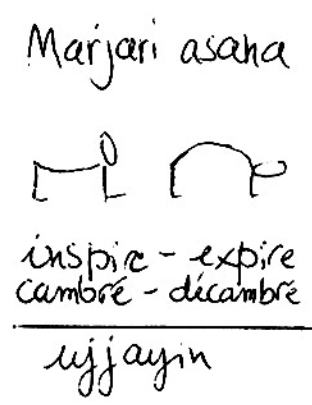 Marjari asana
inspire - expire
cambré - décambré
ujjayin